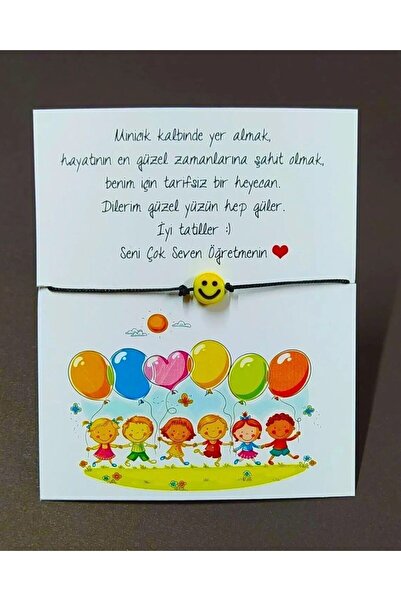 Minicik kalbinde yer almak,
hayatının en güzel zamanlarına şahit olmak,
benim için tarifsiz bir heyecan.
Dilerim güzel yüzün hep güler.
İyi tatiller :)
Seni Çok Seven Öğretmenin ❤